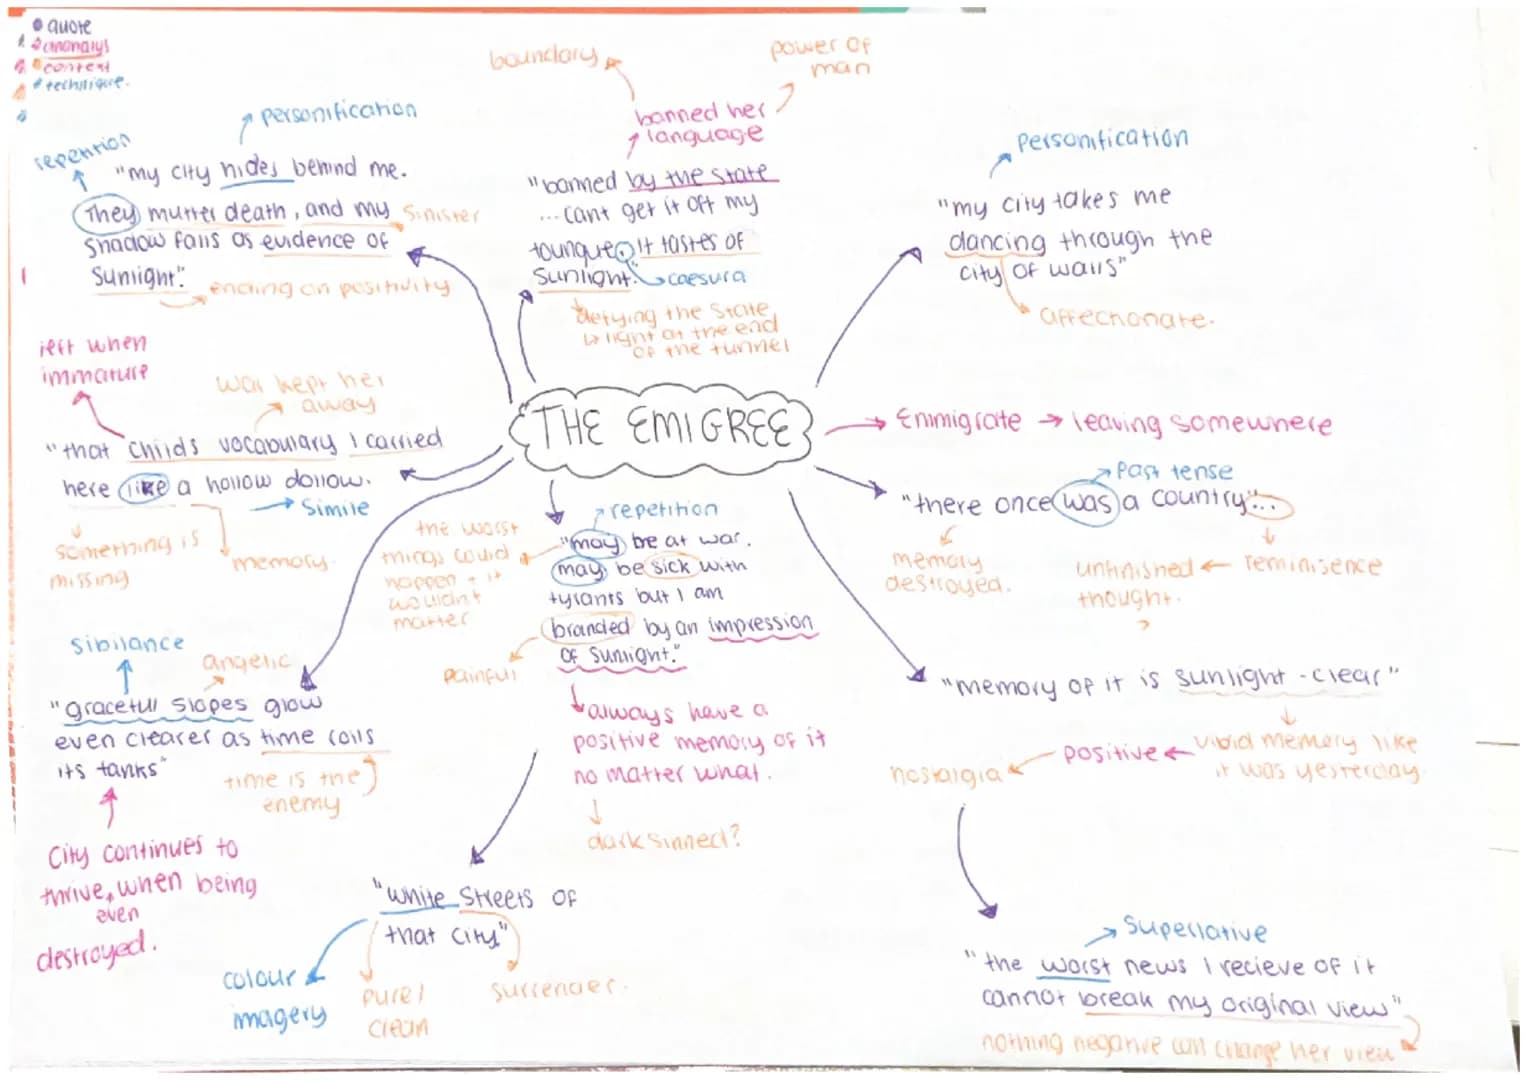 quote
ananalys
context
technique.
boundary
power of
man
personification
banned her
language
repention
Personification
"my city hides behind me.
They mutter death, and my
Sinister
shadow falls as evidence of
Sunlight".
ending on positivity
"banned by the state
...cant get it off my
toungue. it tastes of
Sunlight.
caesura
defying the State,
light at the end
of the tunnel
"my city takes me
dancing through the
city of walls"
affectionate.
left when
immature
war kept her
away
"that childs vocabulary I carried
here like a hollow dollow.
Simile
something is
missing
memory.
THE EMIGREE
Enmigrate → leaving somewhere
Past tense
"there once was a country"...
memory
destroyed.
unfinished ← reminisence
thought.
repetition
"may be at war.
may be sick with
tyrants but I am
branded by an impression
of Sunlight."
the worst
things could
happen + it
wouldnt
matter
painful
always have a
positive memory of it
no matter what.
dark sinned?
Sibilance
angelic
"graceful slopes glow
even clearer as time rolls
its tanks"
time is the
enemy
City continues to
thrive, when being
even
destroyed.
"memory of it is sunlight-clear"
nostalgia
positive ← vibid memory like
it was yesterday.
"White Streets of
that city"
colour
imagery
pure/
clean
surrender.
Superlative
"the worst news I recieve of it
cannot break my original view"
nothing negative can change her view